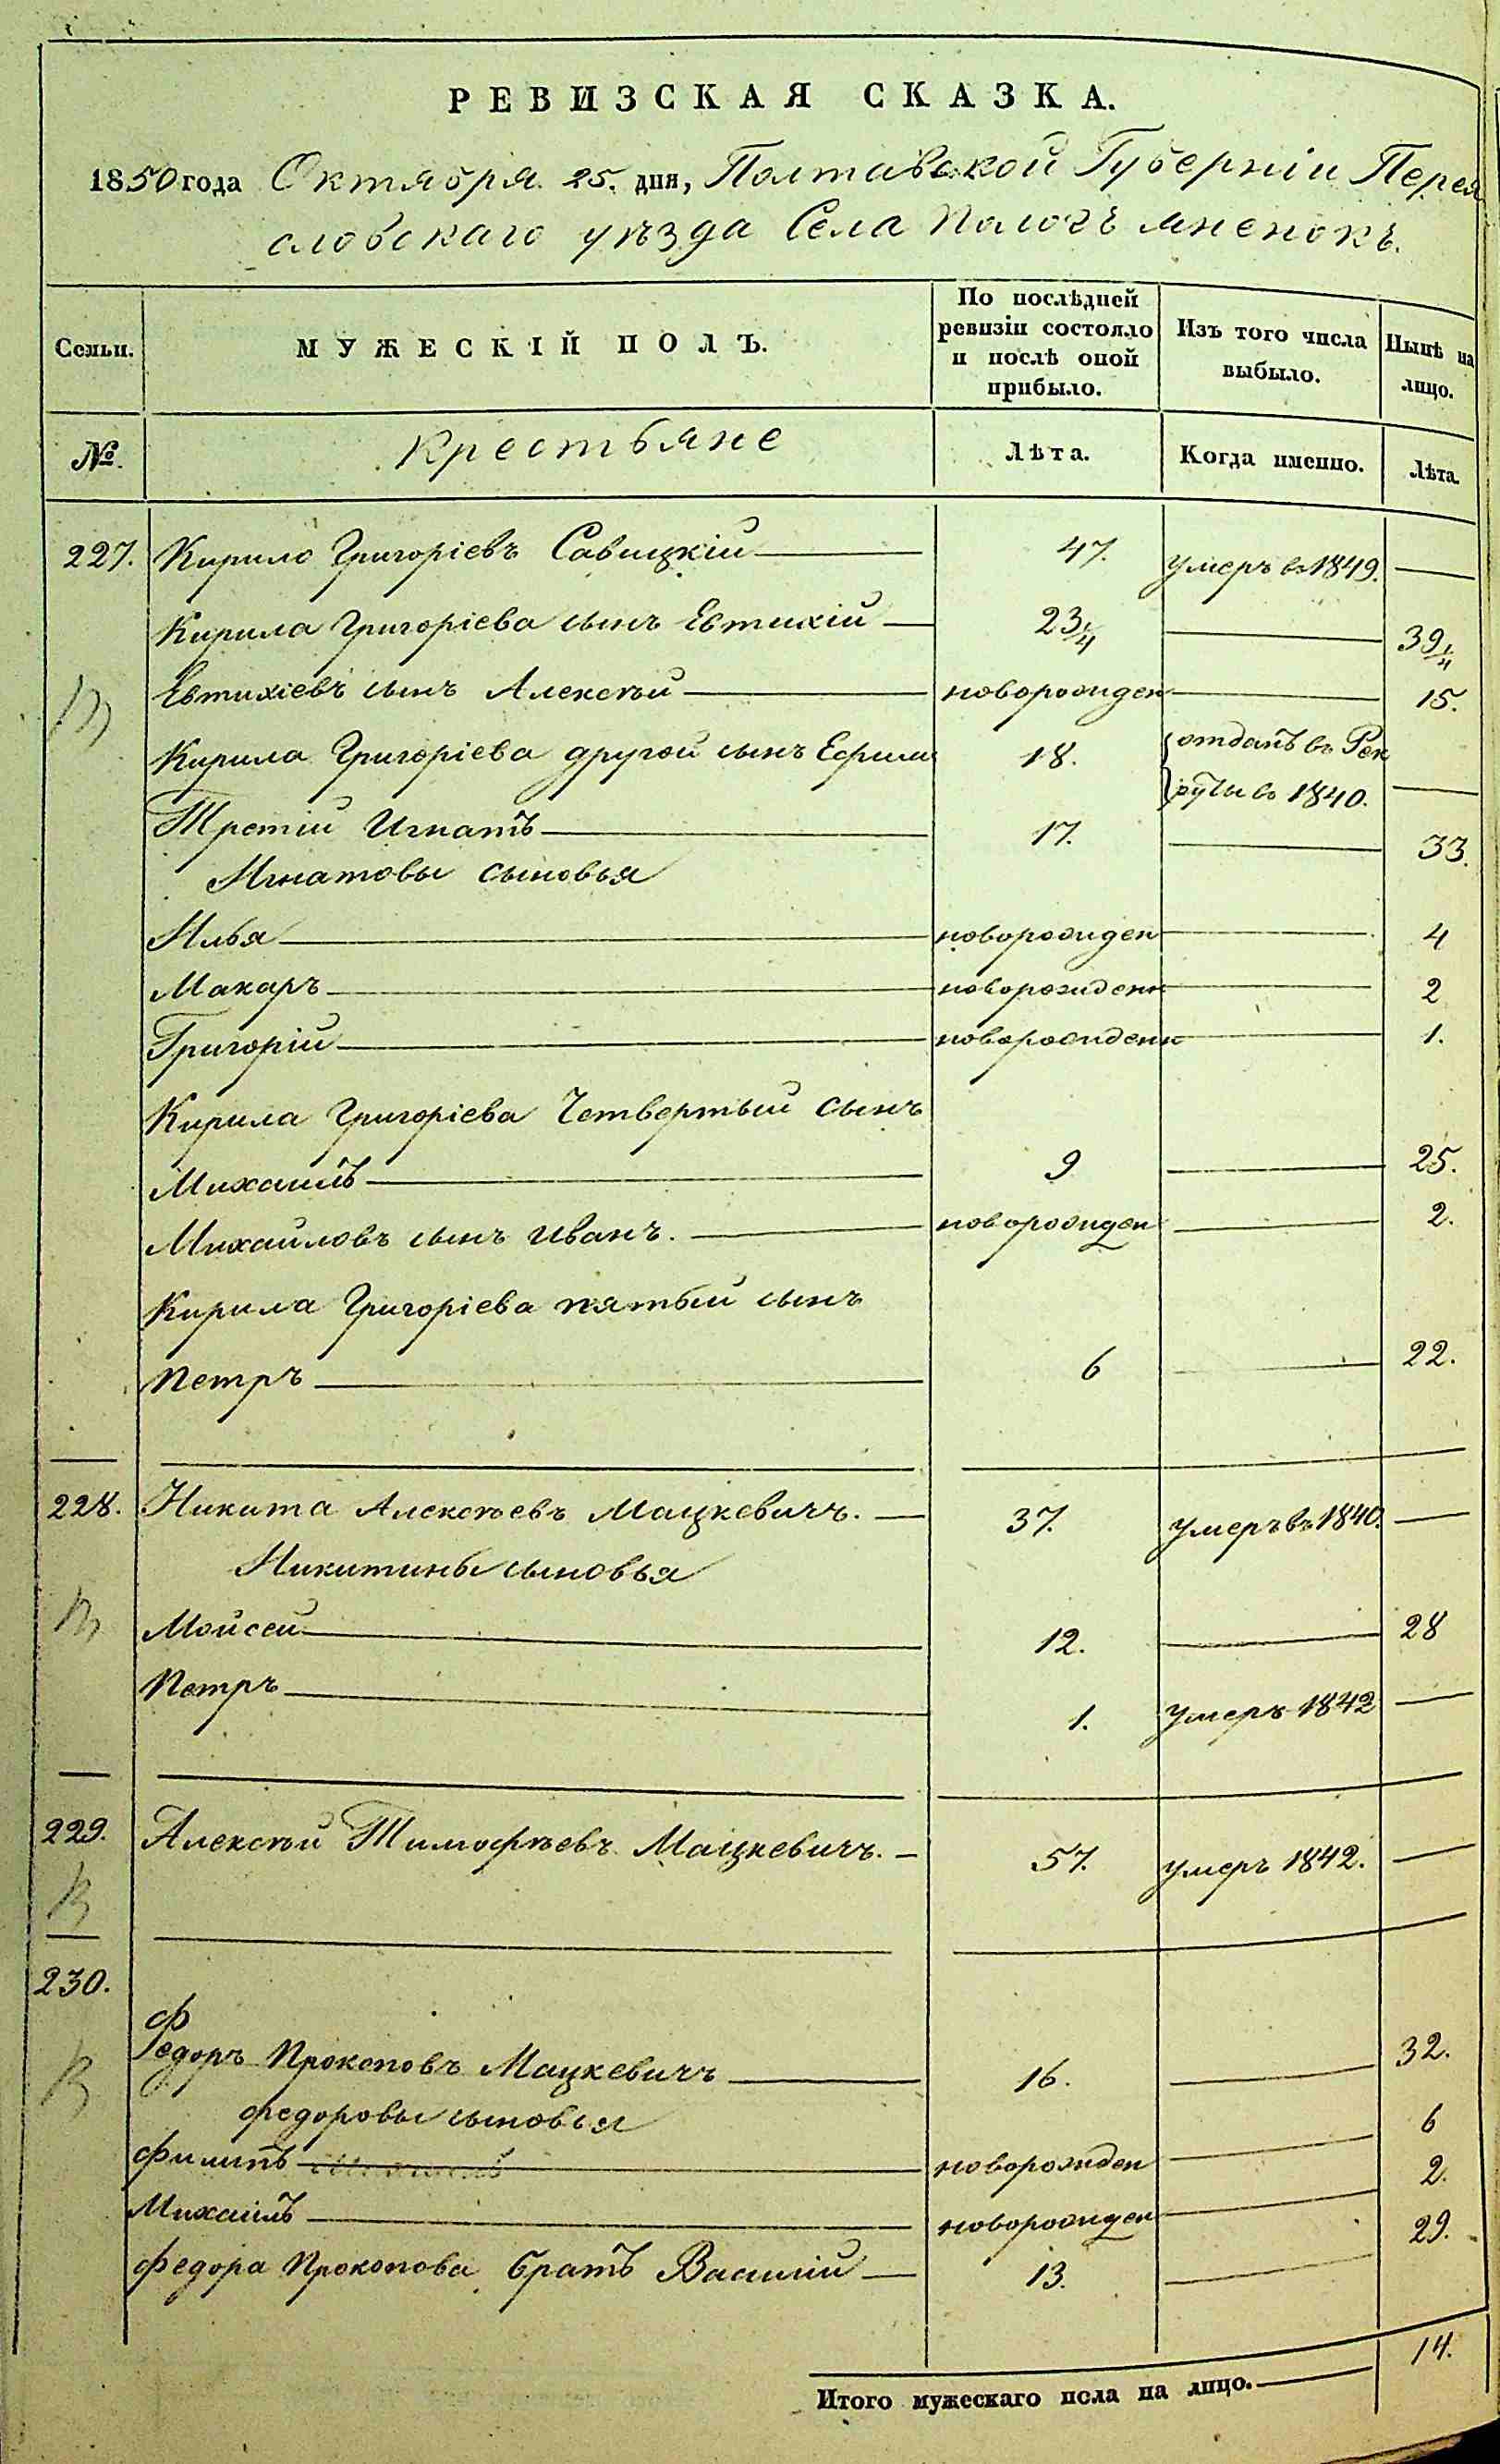 РЕВИЗСКАЯ СКАЗКА.
1850 года Октября 25. дня, Полтавской Губерніи Перея
словскаго уѣзда Села Пологъ Яненокъ.
Семьи. МУЖЕСКІЙ ПОЛЪ. По послѣдней ревизіи состояло и послѣ оной прибыло. Изъ того числа выбыло. Нынѣ на лицо.
№. Крестьяне Лѣта. Когда именно. Лѣта.
227. Кирило Григоріевъ Савицкій 47. умеръ въ 1849.
Кирила Григоріева сынъ Евтихій 23 1/4 39 1/4
Евтихіевъ сынъ Алексѣй новорожден 15.
Кирила Григоріева другой сынъ Ефимъ 18. отданъ въ Рек
руты въ 1840.
Третій Игнатъ 17. 33.
Игнатовы сыновья
Илья новорожден 4
Макаръ новорожденн 2
Григорій новорожденн 1.
Кирила Григоріева Четвертый сынъ
Михаилъ 9 25.
Михаиловъ сынъ Иванъ. новорожден 2.
Кирила Григоріева пятый сынъ
Петръ 6 22.
228. Никита Алексѣевъ Мацкевичъ. 37. умеръ въ 1840.
Никитины сыновья
Мойсей 12. 28
Петръ 1. умеръ 1842
229. Алексѣй Тимофѣевъ Мацкевичъ. 57. умеръ 1842.
230.
Федоръ Прокоповъ Мацкевичъ 16. 32.
Федоровы сыновья
Филипъ новорожден 6
Михаилъ новорожден 2.
Федора Прокопова братъ Василій 13. 29.
Итого мужескаго пола на лицо. 14.